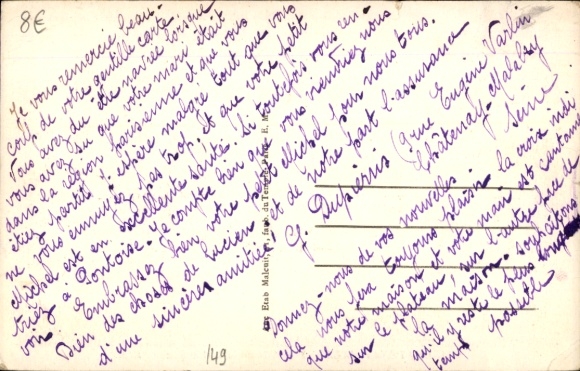 8€
Je vous remercie beau-
coup de votre gentille carte
Vous avez dû être navrée lorsque
vous avez su que votre mari était
dans la région parisienne et que vous
étiez partis. J'espère malgré tout que vous
ne vous ennuyez pas trop et que votre petit
Michel est en excellente santé. Si toutefois vous ren-
triez à Pontoise. Je compte bien que vous viendriez nous
voir. Embrassez bien votre petit Michel pour nous tous.
Bien des choses de Lucien et de notre part l'assurance
d'une sincère amitié
G. Dupierris
rue Eugène Varlin
Châtenay-Malabry
Seine
Donnez-nous de vos nouvelles.
cela nous fera toujours plaisir. la croix indi
que notre maison et votre mari est cantonné
sur le plateau sur l'autre face de
la maison. souhaitons
qu'il y reste le plus longtemps
possible
Etab Malcuit, face du Temple
/49